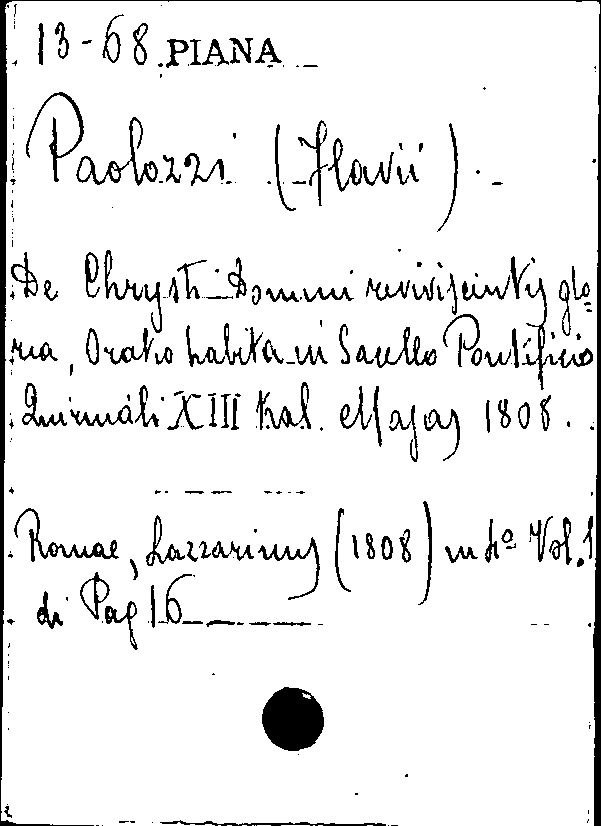 13-68 PIANA
Paolozzi (Flavii).
De Chrysti Domini reviviscintis glo=
ria, Oratio habita in Sacello Pontificio
Quirinali XIII Kal. Majas 1808.
Romae, Lazzarinus (1808) in 4º Vol. 1
di Pag 16